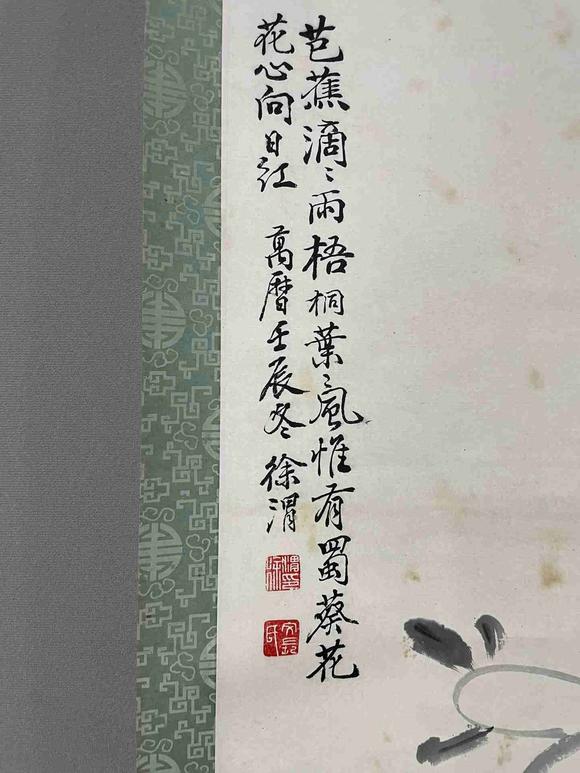 芭蕉滴〻雨梧桐葉〻風惟有蜀葵花
花心向日紅 萬曆壬辰冬 徐渭
文長氏